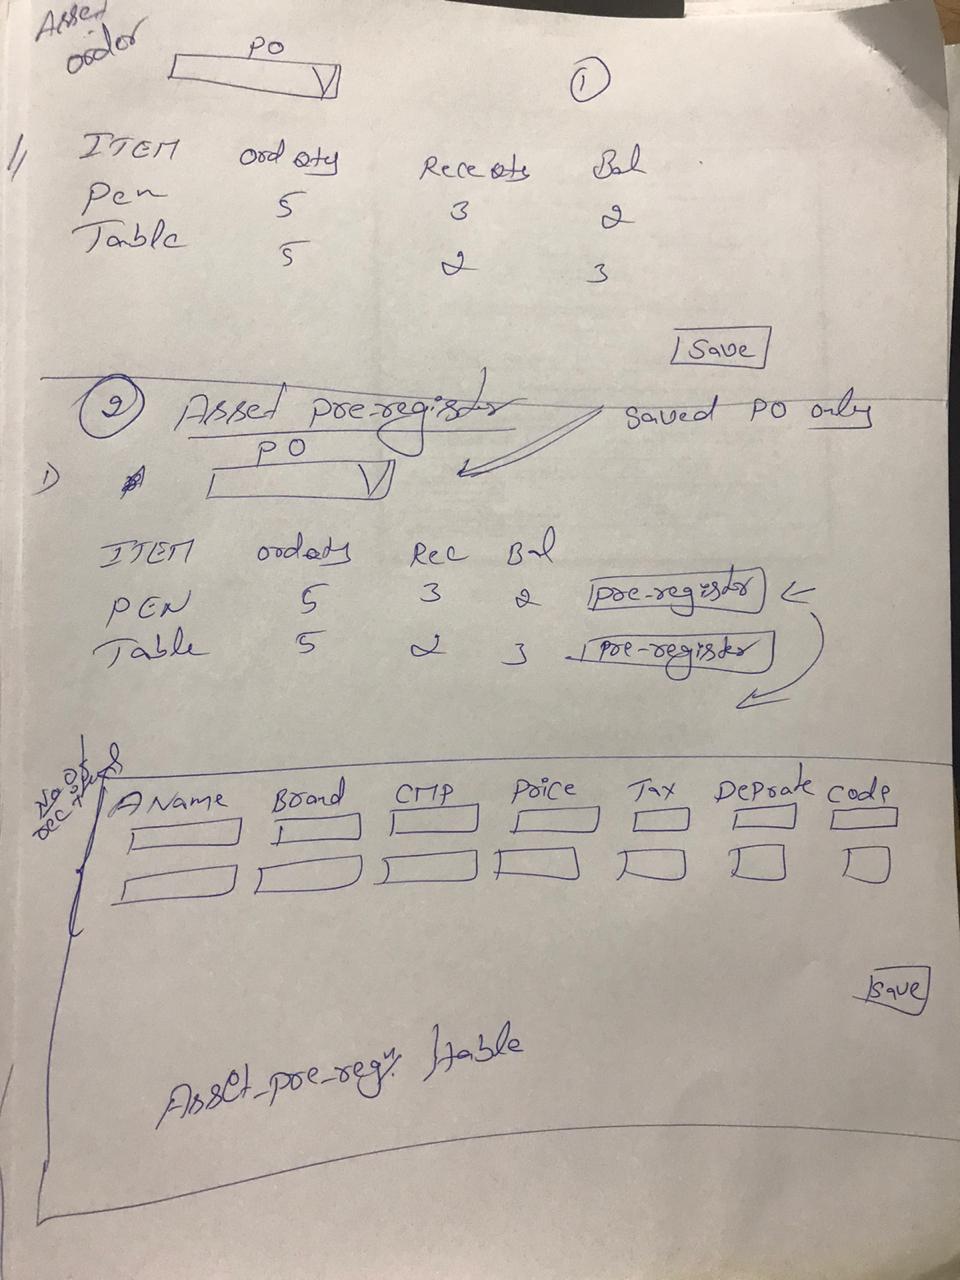 Asset
order
PO
1
1)
ITEM ord Qty Rece Qty Bal
Pen 5 3 2
Table 5 2 3
Save
2 Asset pre-register
saved PO only
1) PO
ITEM ord Qty Rec Bal
PEN 5 3 2 pre-register
Table 5 2 3 pre-register
No of
A Name Brand CMP Price Tax Deprate Code
Save
Asset_pre_reg. table